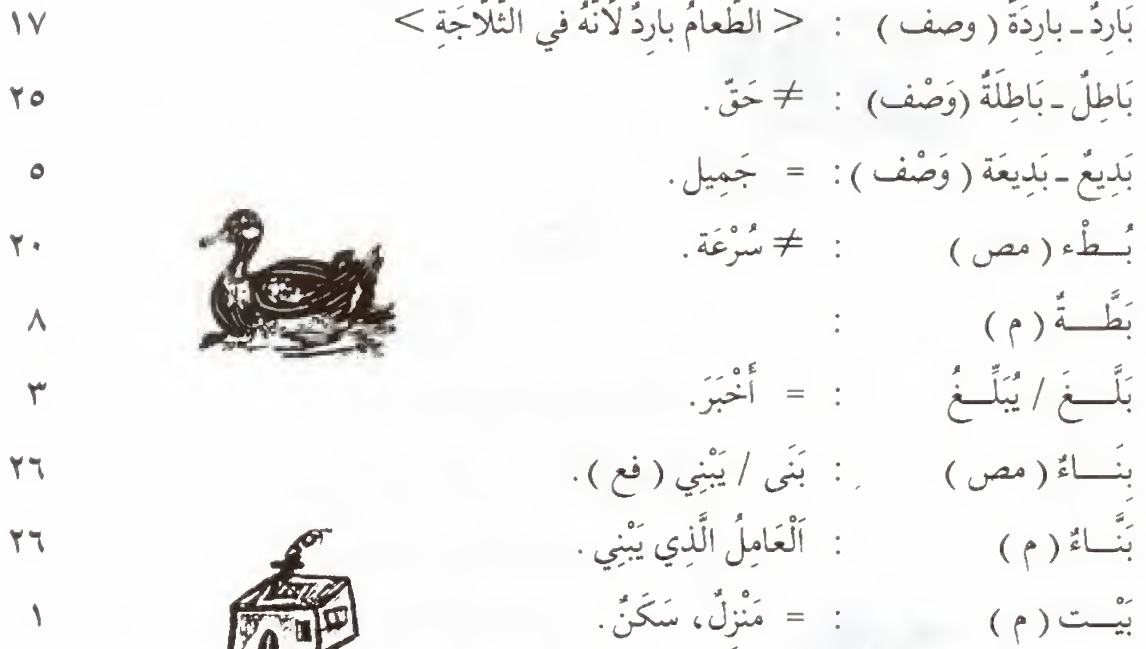 بَارِدٌ ـ بارِدَةٌ ( وصف ) : < الطَّعامُ بارِدٌ لأَنَّهُ في الثَّلاَّجَةِ > ١٧
بَاطِلٌ ـ بَاطِلَةٌ (وَصْف) : ≠ حَقّ . ٢٥
بَدِيعٌ ـ بَدِيعَة ( وَصْف ) : = جَمِيل . ٥
بُـطْء ( مص ) : ≠ سُرْعَة . ٢٠
بَطَّــةٌ ( م ) : ٨
بَلَّــغَ / يُبَلِّــغُ : = أَخْبَرَ . ٣
بِنَــاءٌ ( مص ) : بَنَى / يَبْنِي ( فع ) . ٢٦
بَنَّــاءٌ ( م ) : اَلْعَامِلُ الَّذِي يَبْنِي . ٢٦
بَيْــت ( م ) : = مَنْزِلٌ، سَكَنٌ . ١